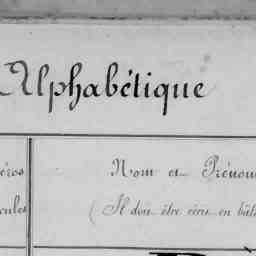 Alphabétique
éros Nom et Prénom
cules (Il doit être écrit en bât